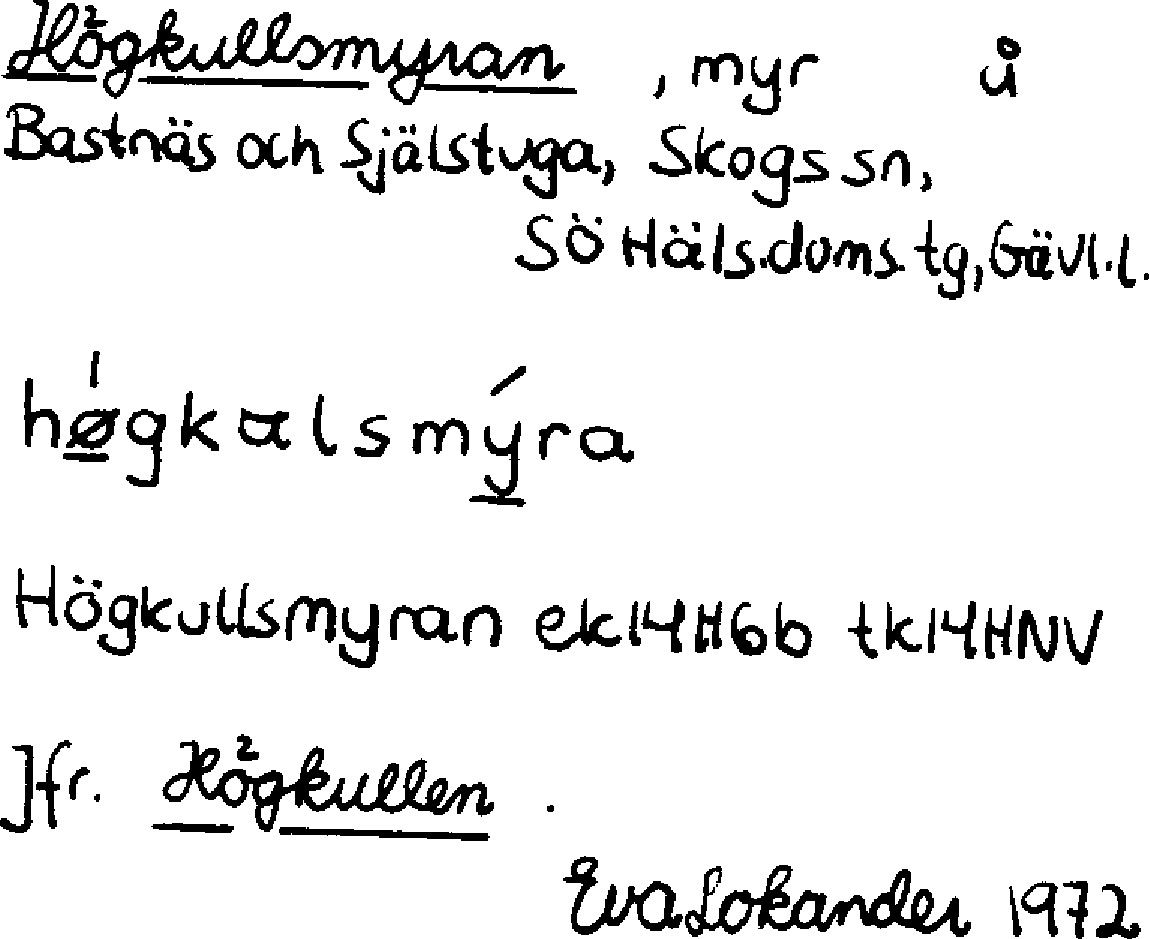 Högkullsmyran, myr å
Bastnäs och Själstuga, Skogs sn,
SÖ Häls.doms.tg, Gävl.l.
hǿ̱gkαlsmý̱ra
Högkullsmyran ek14H6b tk14HNV
Jfr. Högkullen.
Eva Lokander 1972